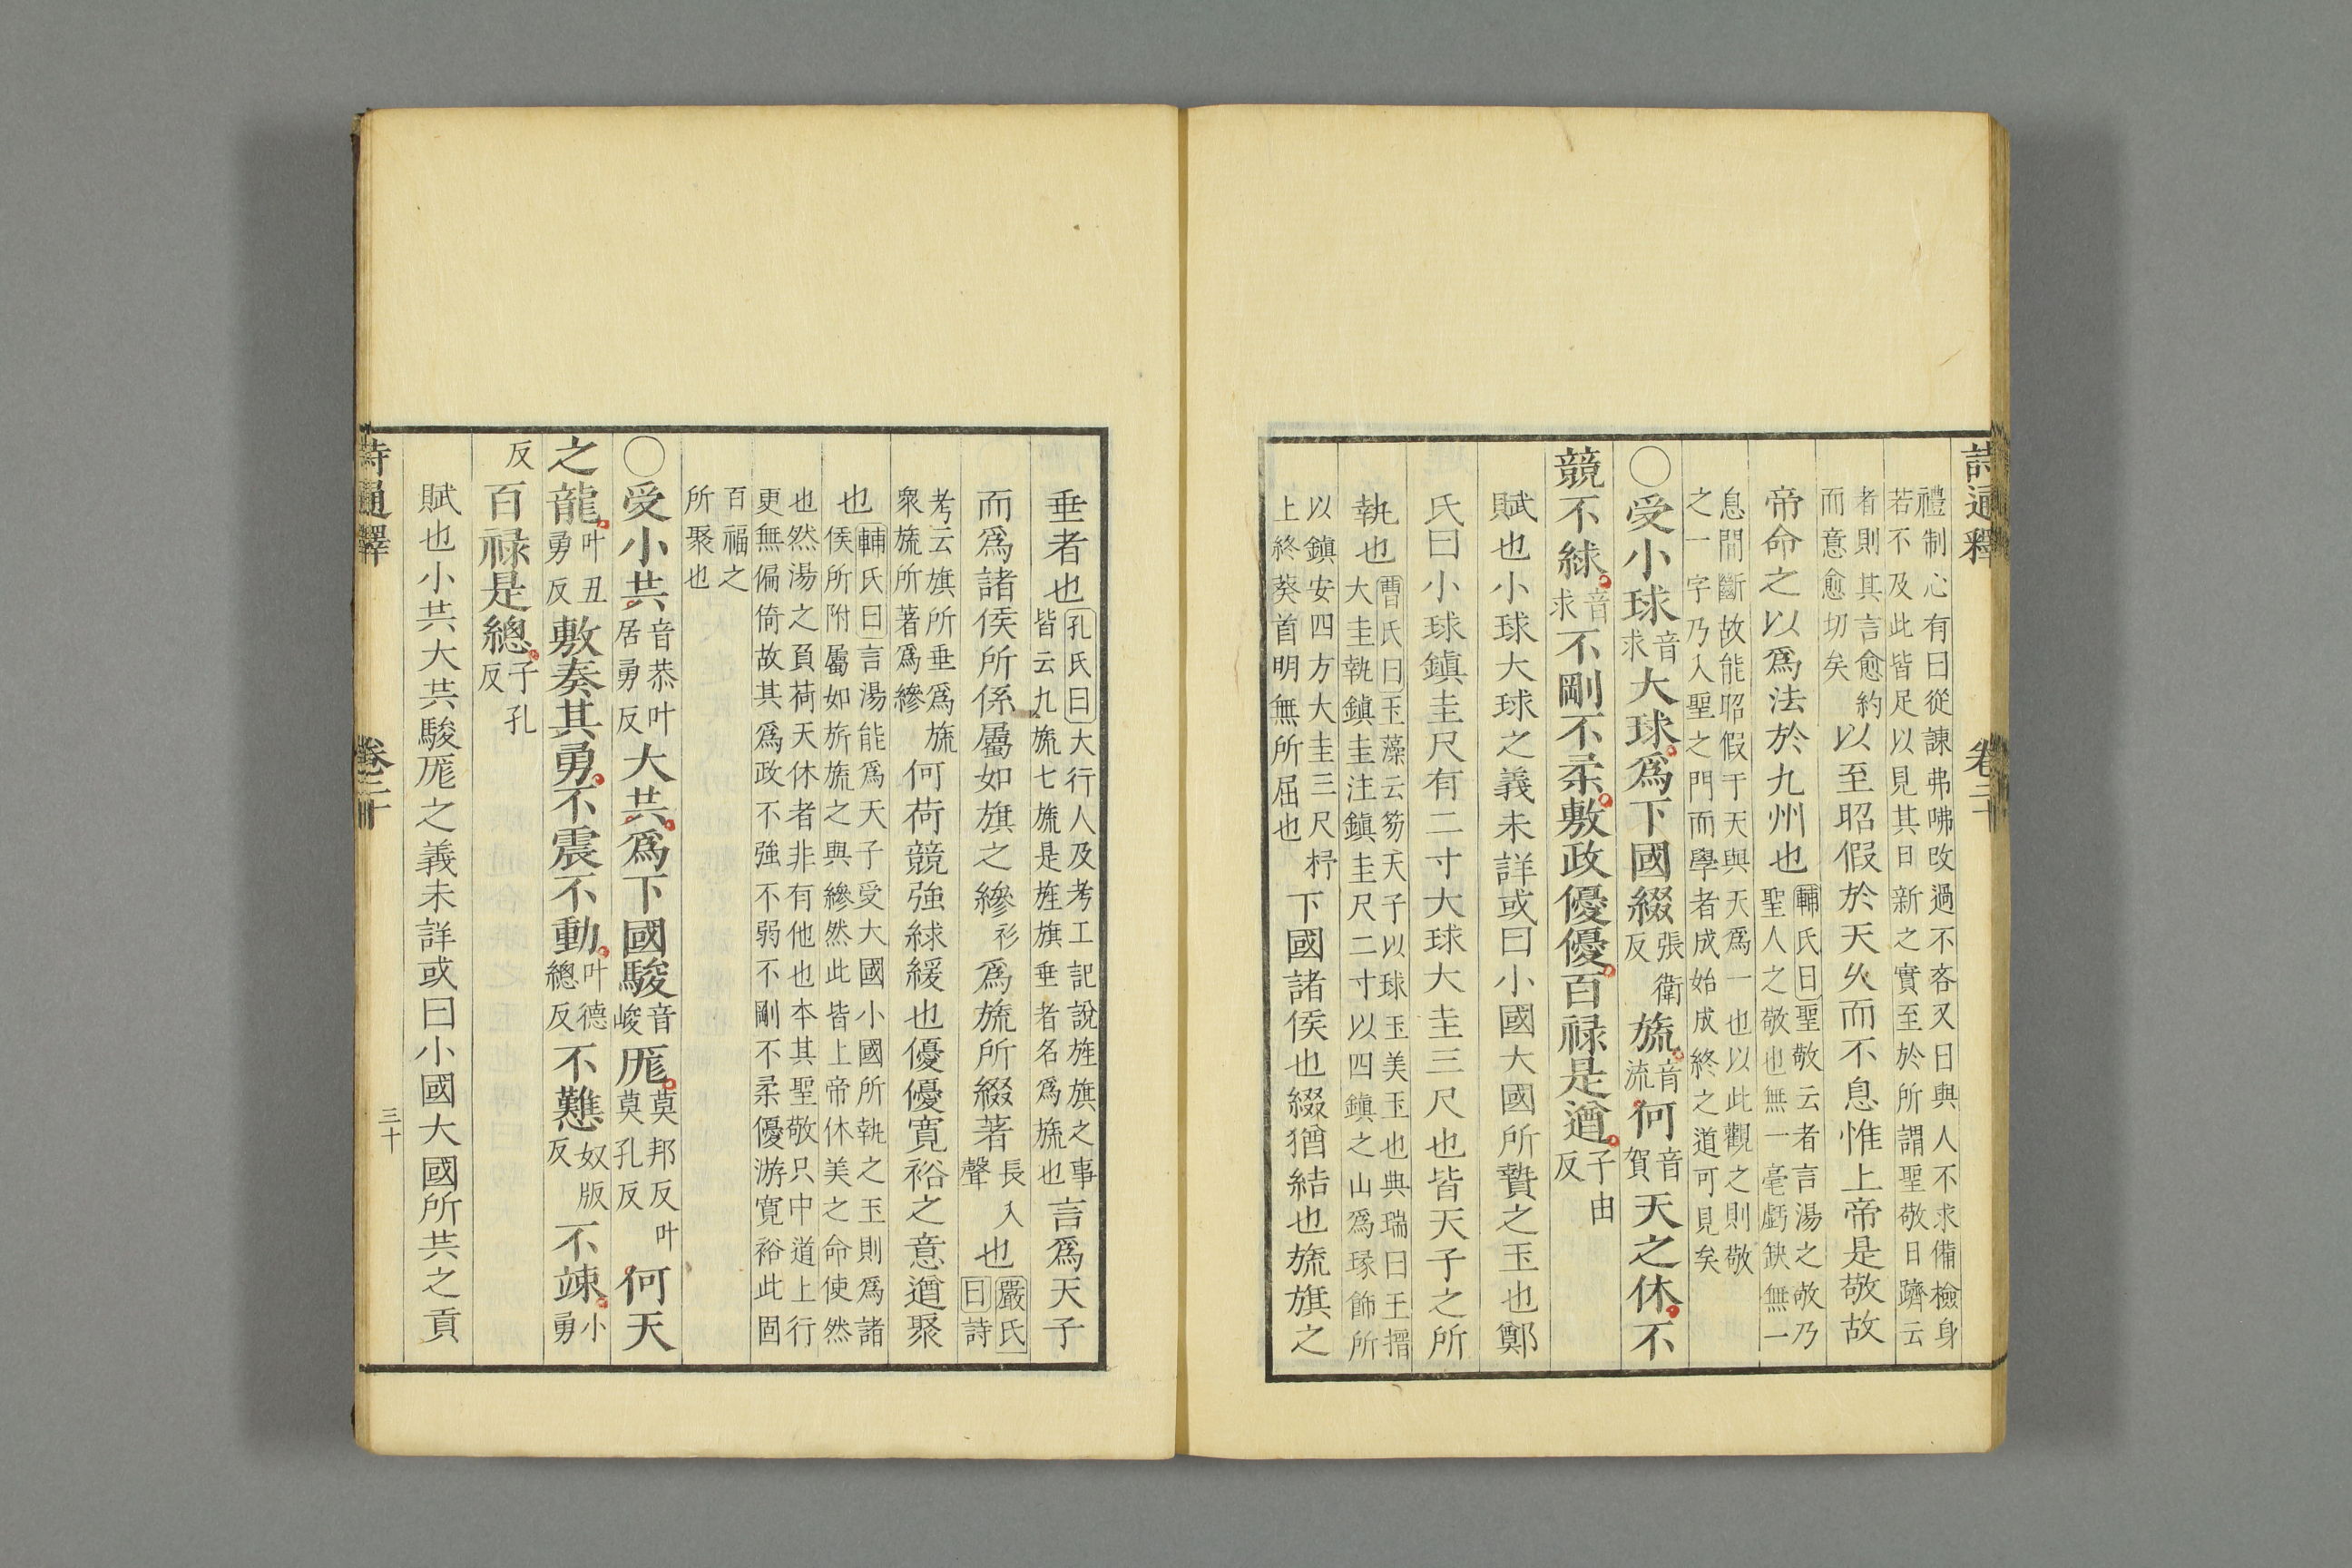 詩通釋 卷二十
禮制心有曰從諫弗咈改過不吝又曰與人不求備檢身
若不及此皆足以見其日新之實至於所謂聖敬日躋云
者則其言愈約
而意愈切矣
以至昭假於天久而不息惟上帝是敬故
帝命之以爲法於九州也
輔氏曰聖敬云者言湯之敬乃
聖人之敬也無一毫虧缺無一
息間斷故能昭假于天與天爲一也以此觀之則敬
之一字乃入聖之門而學者成始成終之道可見矣
○受小球音求大球爲下國綴張衛反旒音流何音賀天之休不
競不絿音求不剛不柔敷政優優百禄是遒子由反
賦也小球大球之義未詳或曰小國大國所贄之玉也鄭
氏曰小球鎮圭尺有二寸大球大圭三尺也皆天子之所
執也
曹氏曰玉藻云笏天子以球玉美玉也典瑞曰王搢
大圭執鎮圭注鎮圭尺二寸以四鎮之山爲瑑飾所
以鎮安四方大圭三尺杼
上終葵首明無所屈也
下國諸侯也綴猶結也旒旗之
垂者也
孔氏曰大行人及考工記說旌旗之事
皆云九旒七旒是旌旗垂者名爲旒也
言爲天子
而爲諸侯所係屬如旗之縿衫爲旒所綴著長入聲也
嚴氏曰詩
考云旗所垂爲旒
衆旒所著爲縿
何荷競強絿緩也優優寛裕之意遒聚
也
輔氏曰言湯能爲天子受大國小國所執之玉則爲諸
侯所附屬如旂旒之與縿然此皆上帝休美之命使然
也然湯之負荷天休者非有他也本其聖敬只中道上行
更無偏倚故其爲政不強不弱不剛不柔優游寛裕此固
百福之
所聚也
○受小共音恭叶居勇反大共爲下國駿音峻厖莫邦反叶莫孔反何天
之龍叶丑勇反敷奏其勇不震不動叶德總反不戁奴版反不竦小勇
反百禄是總子孔反
賦也小共大共駿厖之義未詳或曰小國大國所共之貢
詩通釋 卷二十 三十